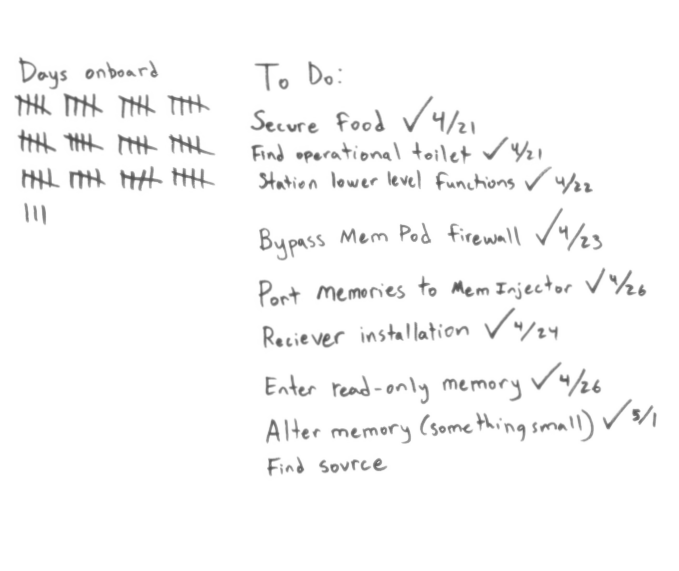 Days onboard
To Do:
Secure food ✓ 4/21
Find operational toilet ✓ 4/21
Station lower level functions ✓ 4/22
Bypass Mem Pod firewall ✓ 4/23
Port memories to Mem Injector ✓ 4/26
Reciever installation ✓ 4/24
Enter read-only memory ✓ 4/26
Alter memory (something small) ✓ 5/1
Find source